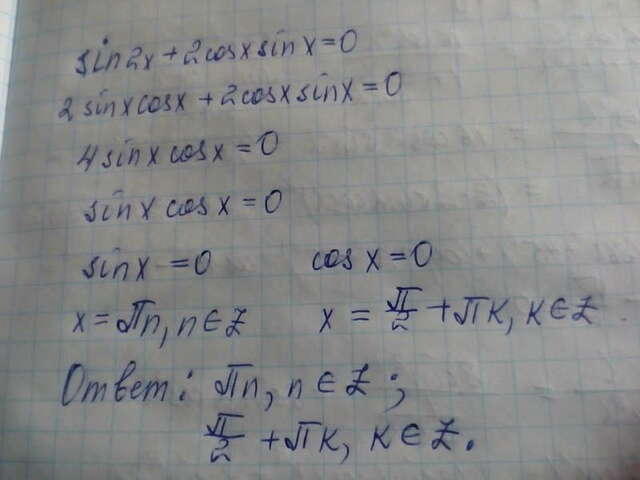 sin2x + 2cosxsinx = 0
2sinxcosx + 2cosxsinx = 0
4sinx cosx = 0
sinx cosx = 0
sinx = 0 cosx = 0
x = πn, n ∈ Z x = π/2 + πk, k ∈ Z.
Ответ: πn, n ∈ Z;
π/2 + πk, k ∈ Z.